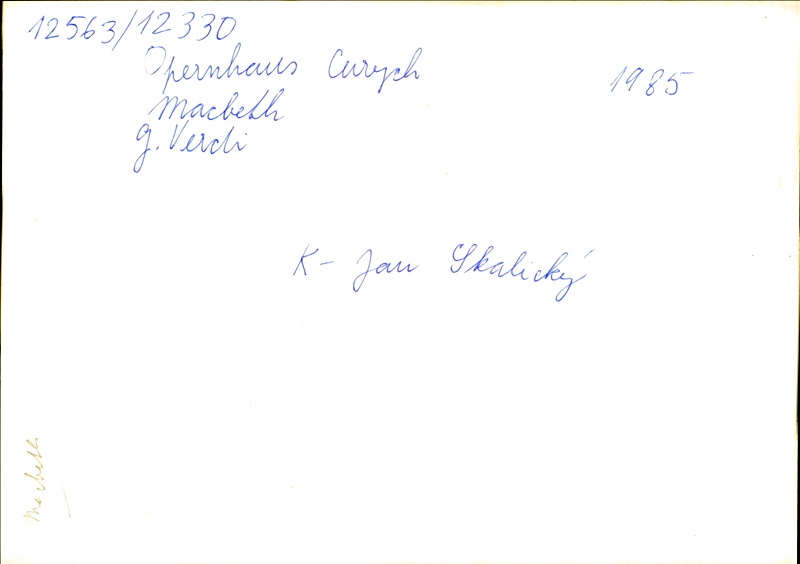 12563/12330
Opernhaus Curych 1985
Macbeth
G. Verdi
K- Jan Skalický
Macbeth